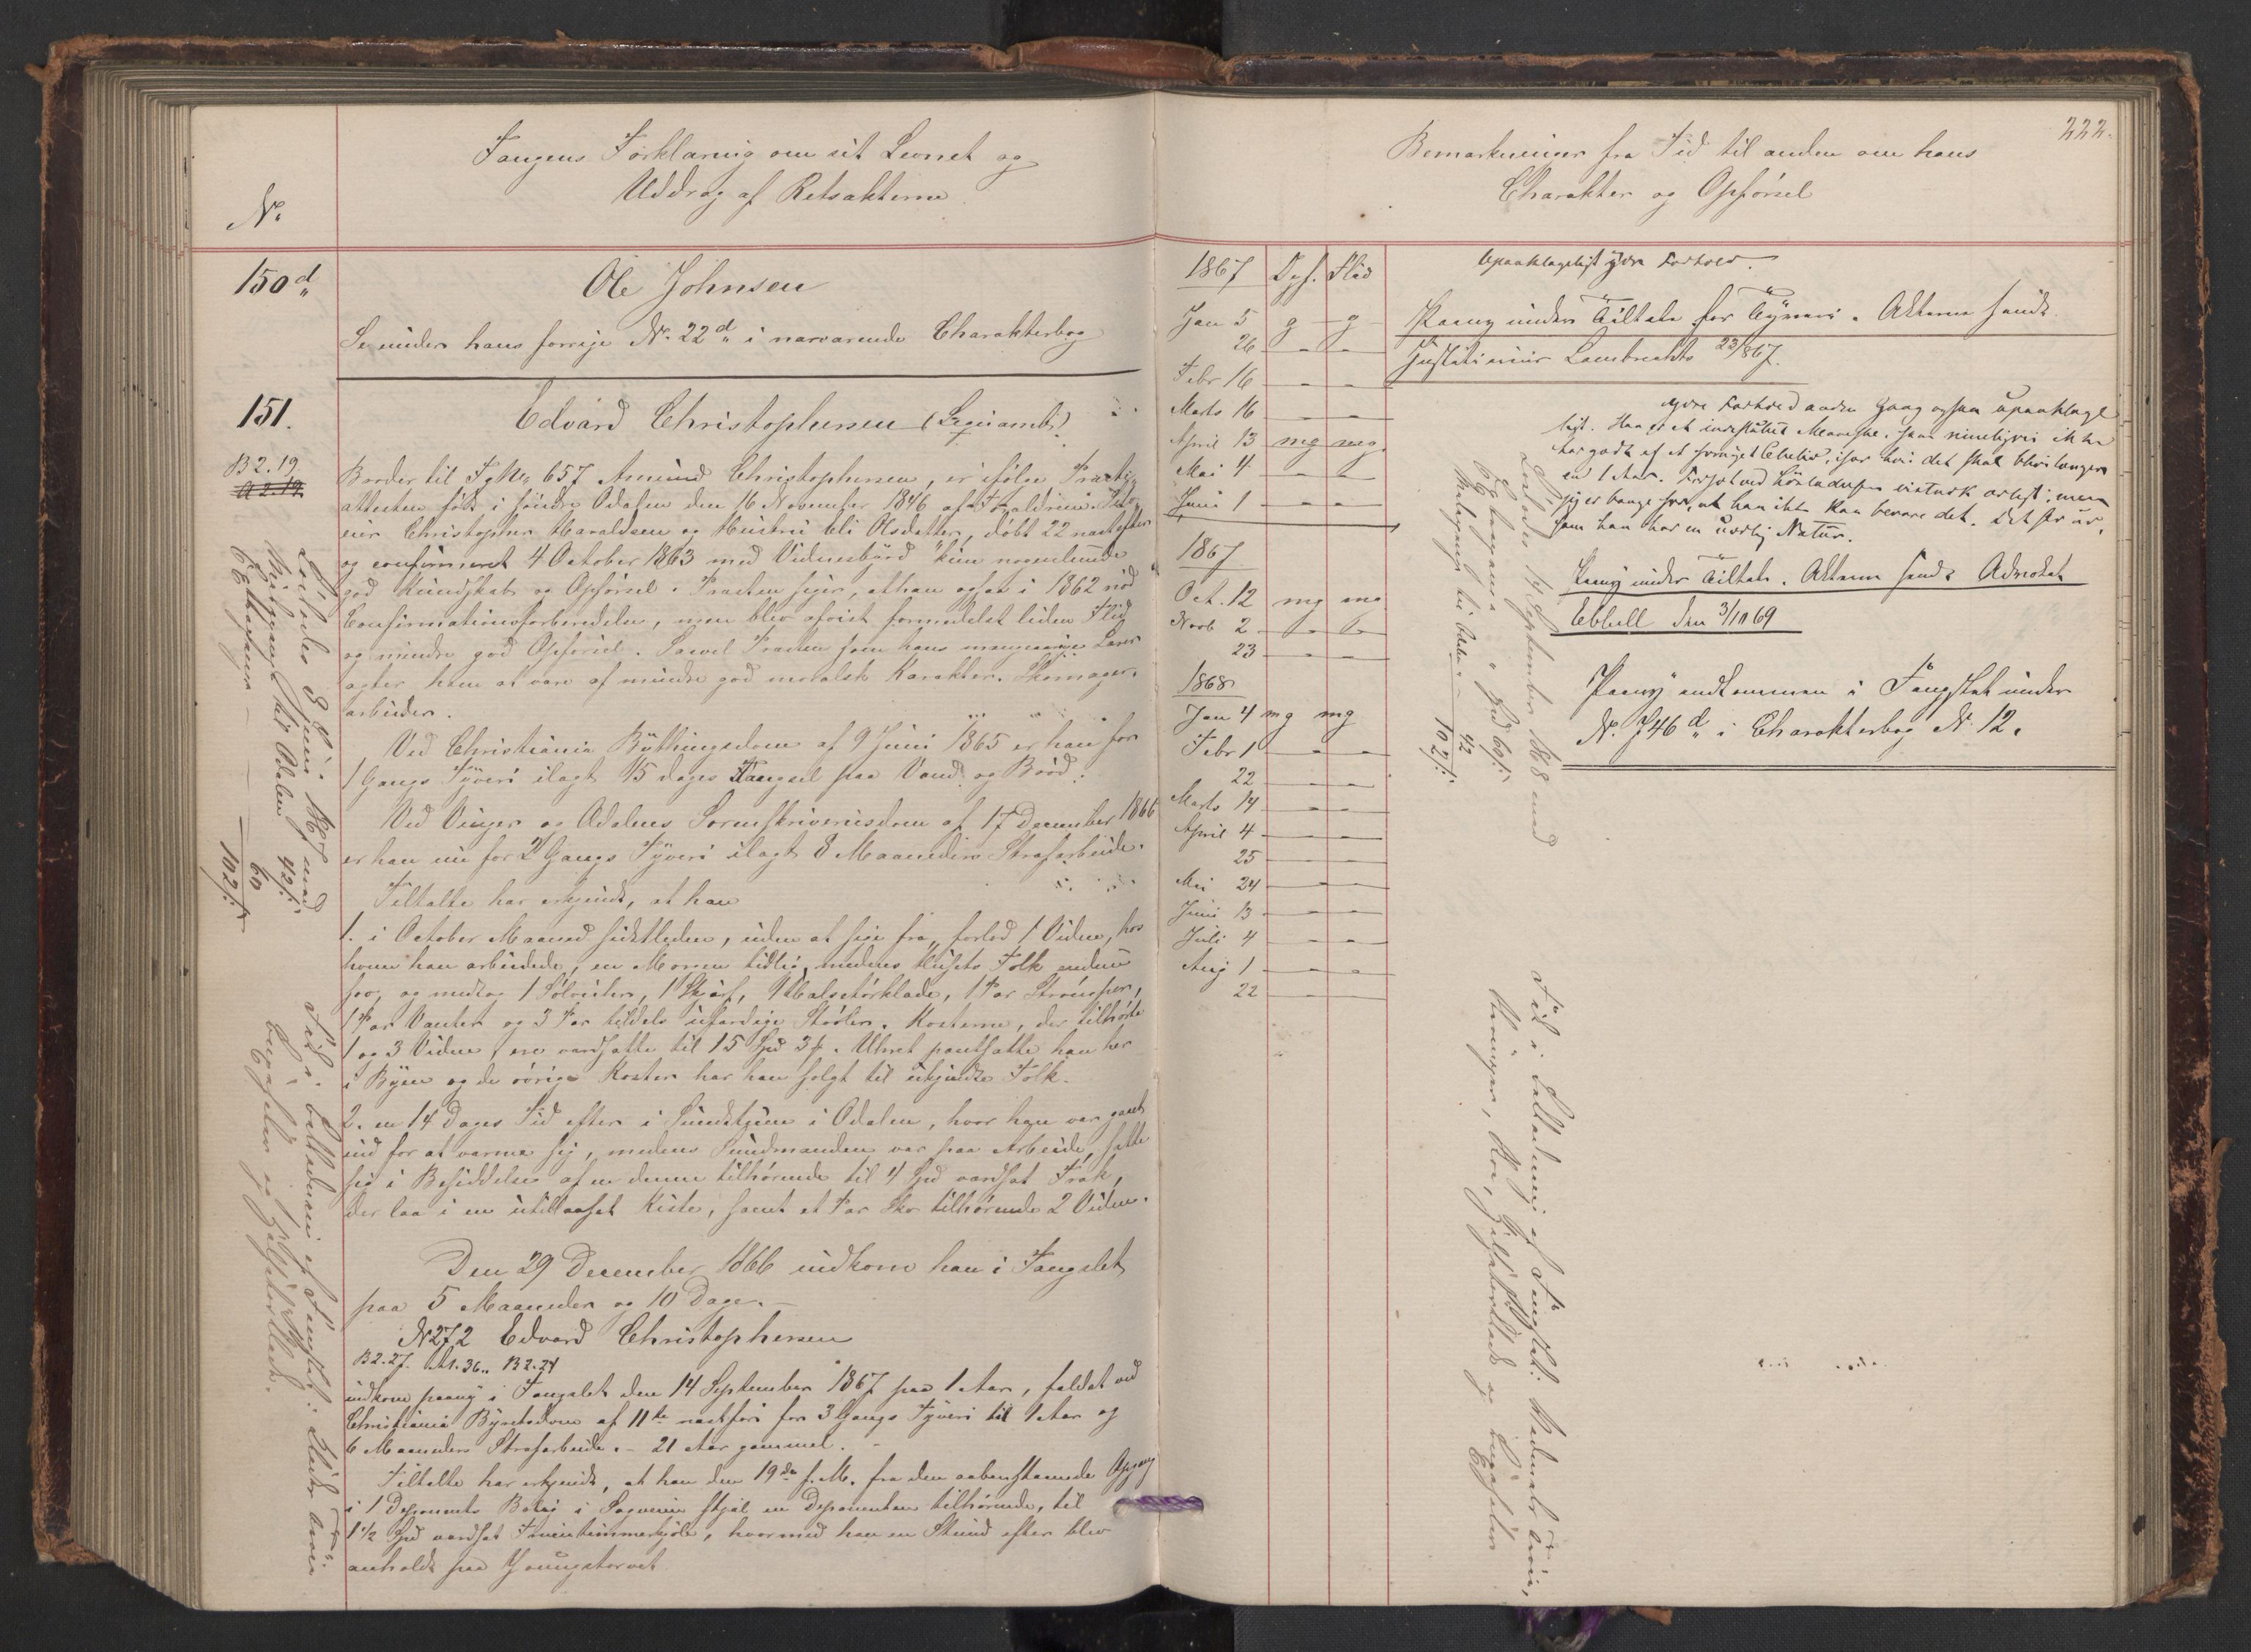 Fangens Forklaring om sit Levnet og
Uddrag af Retsakterne
No
150d
Ole Johnsen
Se under hans forrige No 22d i nærværende Charakterbog
151.
Edvard Christophersen
B 2. 19.
A 2. 12.
Broder til Fg No 657 Amund Christophersen, er ifølge Præste
attesten født i søndre Odalen den 16 November 1846 af Forældrene
eier Christopher Haraldsen og Hustru Eli Olsdatter, døbt 22 næstefter
og confirmeret 4 October 1863 med Vidnesbyrd "kun nogenlunde
god Kundskab og Opførsel. Præsten siger, at han ogsaa i 1862 nød
Confirmationsforberedelse, men blev afvist formedelst liden Flid
og mindre god Opførsel. Saavel Præsten som hans Lærer
agter ham at være af mindre god moralsk Karakter. Skomager-
arbeider.
Ved Christiania Bythingsdom af 9 Juni 1865 er han for
1 Gangs Tyveri ilagt 15 dages Fængsel paa Vand og Brød.
Ved Vinger og Odalens Sorenskriverisdom af 17 December 1866
er han nu for 2 Gangs Tyveri ilagt 8 Maaneders Strafarbeide.
Tiltalte har erkjendt, at han
1. i October Maaned sidstleden, uden at sige fra, forlod 1 Vidne, hos
hvem han arbeidede, en Morgen tidlig, medens Husets Folk endnu
sov, og medtog 1 Sølvuhr, 1 Skjærf, 1 Halstørklæde, 1 Par Strømper,
1 Par Vanter og 3 Par tildels ufærdige Støvler. Kosterne, der tilhørte
1 og 3 Vidne, ere værdsatte til 15 Spd 3 ƒ. Uhret pantsatte han her
i Byen og de øvrige Koster har han solgt til ukjendte Folk.
2. en 14 Dages Tid efter i i Odalen, hvor han var gaaet
ind for at varme sig, medens var paa Arbeide, satte
sig i Besiddelse af en denne tilhørende til 4 Spd værdsat Frak,
der laa i en utillaaset Kiste, samt et Par Sko tilhørende 2 Vidne.
Den 29 December 1866 indkom han i Fængslet
paa 5 Maaneder og 10 Dage.
N 272 Edvard Christophersen
B 2. 27. A 1. 36. B 2. 24
indkom paany i Fængslet den 14 September 1867 paa 1 Aar, faldet ved
Christiania Byretsdom af 11te næstfør for 3 Gangs Tyveri til 1 Aar og
6 Maaneders Strafarbeide. - 21 Aar gammel.
Tiltalte har erkjendt, at han den 19de f. M. fra den aabenstaaende Opgang
i 1 Deponents Bolig i stjal en Deponenten tilhørende, til
1 1/2 Spd værdsat Fruentimmerkjole, hvormed han en Stund efter blev
anholdt paa Youngstorvet
Løslodes 8 Juni 1867 med
Reisepenge til Odalen 42 ß
60
102 ß
222.
Bemærkninger fra Tid til anden om hans
Charakter og Opførsel
1867 Opf. Flid
Jan 5 g g
26 - -
Febr 16 - -
Marts 16 - -
April 13 mg mg
Mai 4 - -
Juni 1 - -
1867
Oct. 12 mg mg
Novb 2 - -
23 - -
1868
Jan 4 mg mg
Febr 1 - -
22 - -
Marts 14 - -
April 4 - -
25 - -
Mai 24 - -
Juni 13 - -
Juli 4 - -
Aug 1 - -
22 - -
Upaaklageligt ydre Forhold.
Paany under Tiltale for Tyveri. Akterne sendt
Justitiarius Lambrechts 23/ 867.
Ydre Forhold anden Gang ogsaa upaaklage
ligt. Han er et Menneske, som rimeligvis ikke
har godt af et tvunget Celleliv, især hvis det skal blive længere
end 1 Aar. Forsæt ved Løsladelsen vistnok ærligt; men
jeg er bange for, at han ikke kan bevare det. Det er
som han har en uærlig Natur.
Paany under Tiltale. Akterne sendt Advokat
Ebbell den 3/10 69
Paany indkommen i Fængslet under
No. 746d i Charakterbog No 12.
Løslodes 14 September 1868 med
60 ß
42
102 ß